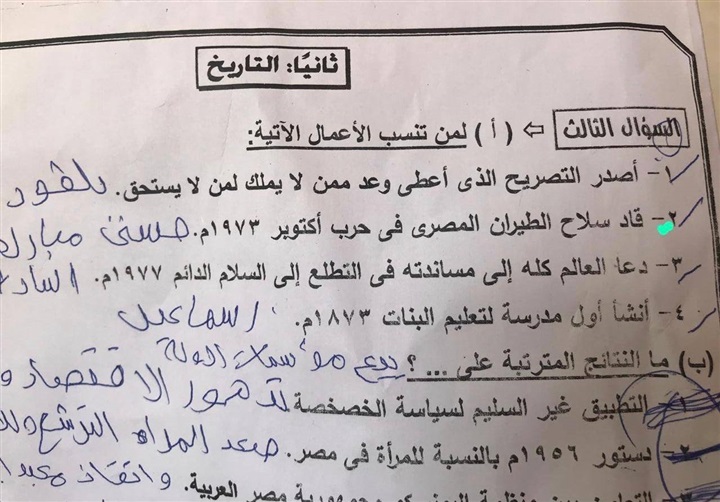 ثانيًا: التاريخ
السؤال الثالث ⇦ ( أ ) لمن تنسب الأعمال الآتية:
١- أصدر التصريح الذى أعطى وعد ممن لا يملك لمن لا يستحق. بلفور
٢- قاد سلاح الطيران المصرى فى حرب أكتوبر ١٩٧٣م. حسنى مبارك
٣- دعا العالم كله إلى مساندته فى التطلع إلى السلام الدائم ١٩٧٧م. السادا
٤- أنشأ أول مدرسة لتعليم البنات ١٨٧٣م. اسماعيل
(ب) ما النتائج المترتبة على ... ؟ بيع
١- التطبيق غير السليم لسياسة الخصخصة تدهور الاقتصاد و
٢- دستور ١٩٥٦م بالنسبة للمرأة فى مصر. المراه الترشح
جمهورية مصر العربية.